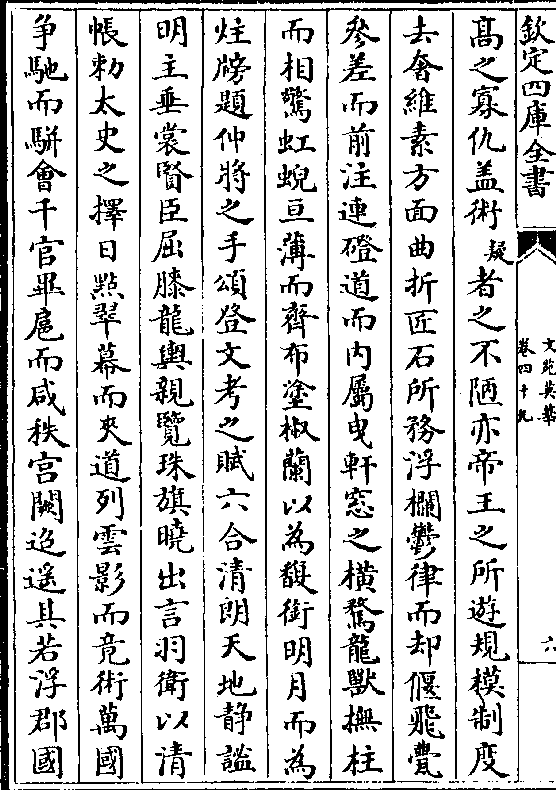 欽定四庫全書
文苑英華
卷四十九
六
髙之寡仇盖術疑者之不陋亦帝王之所遊規模制度
去奢維素方面曲折匠石所務浮欄鬱律而却偃飛甍
參差而前注連磴道而内屬曳軒窓之横騖龍獸撫柱
而相驚虹蜺亘薄而齊布塗椒蘭以為馥銜明月而為
炷牓題仲將之手頌登文考之賦六合清朗天地静謐
明主垂裳賢臣屈膝龍輿親覽珠旗曉出言羽衛以清
帳勑太史之擇日㸃翠幕而夾道列雲影而竟術萬國
争馳而駢會千官畢扈而咸秩宫闕迢遥具若浮郡國